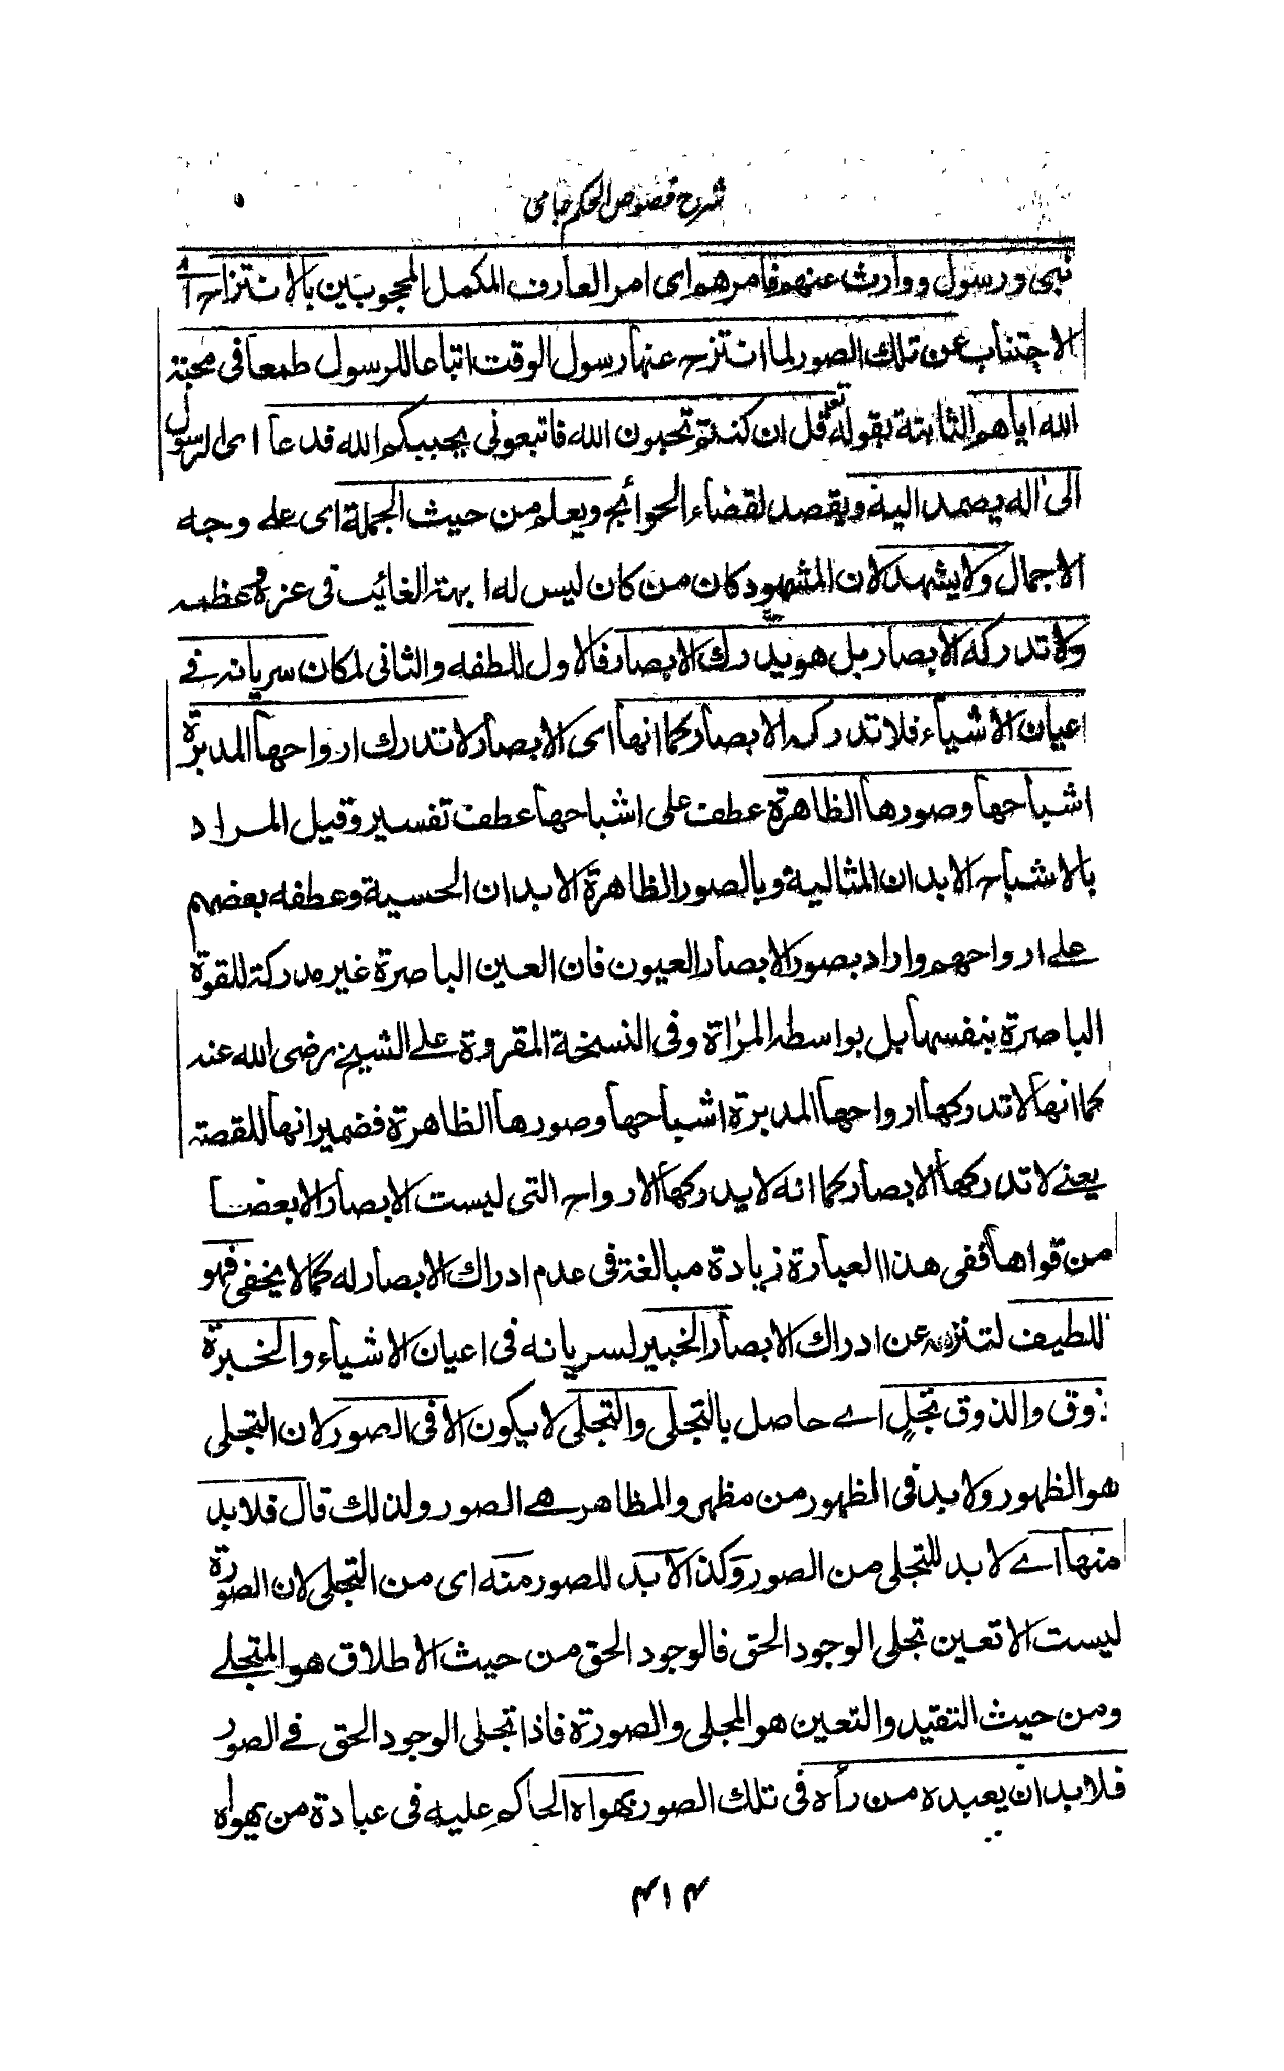 شرح فصوص الحكم جامى
نبى و رسول و وارث عنهم فامرهم اى امر العارف المكمل المحجوبين بالانتزاح اى
الاجتناب عن تلك الصور لما انتزح عنها رسول الوقت اتباعا للرسول طمعا فى محبة
الله اياهم الثابتة بقوله تعم قل ان كنتم تحبون الله فاتبعونى يحببكم الله فدعا اى الرسول
الى اله يصمد اليه ويقصد لقضاء الحوائج ويعلم من حيث الجملة اى على وجه
الاجمال ولا يشهد لان المشهود كان من كان ليس له الغائب فى عزه
ولا تدركه الابصار بل هو يدرك الابصار فالاول للطفه والثانى لمكان سريانه فى
اعيان الاشياء فلا تدركه الابصار كما انها اى الابصار لا تدرك ارواحها المدبرة
اشباحها وصورها الظاهرة عطف على اشباحها عطف تفسير وقيل المراد
بالاشباح الابدان المثالية وبالصور الظاهرة الابدان الحسية وعطفه بعضهم
على ارواحهم واراد بصور الابصار العيون فان العين الباصرة غير مدركة للقوة
الباصرة بنفسها بل بواسطه المرٰاة وفى النسخة المقروة على الشيخ رضى الله عنه
كما انها لا تدركها ارواحها المدبرة اشباحها وصورها الظاهرة فضمير انها للقصة
يعنے لا تدركها الابصار كما انه لا يدركها الارواح التى ليست الابصار الا بعضا
من قواها ففى هذا العبارة زيادة مبالغة فى عدم ادراك الابصار له كما لا يخفى فهو
للطيف لتنزهه عن ادراك الابصار الخبير لسريانه فى اعيان الاشياء والخبرة
ذوق والذوق تجلٍ اے حاصل بالتجلى والتجلى لا يكون الا فى الصور لان التجلى
هو الظهور ولا بد فى الظهور من مظهر والمظاهر هے الصور ولذلك قال فلا بد
منها اے لا بد للتجلى من الصور وكذا لا بد للصور منه اى من التجلى لان الصورة
ليست الا تعين تجلى الوجود الحق فالوجود الحق من حيث الاطلاق هو المتجلے
ومن حيث التقيد والتعين هو المجلى والصورة فاذا تجلى الوجود الحق فے الصور
فلا بد ان يعبده من رأه فى تلك الصور بهواه الحاكم عليه فى عبادة من يهواه
۴۱۴